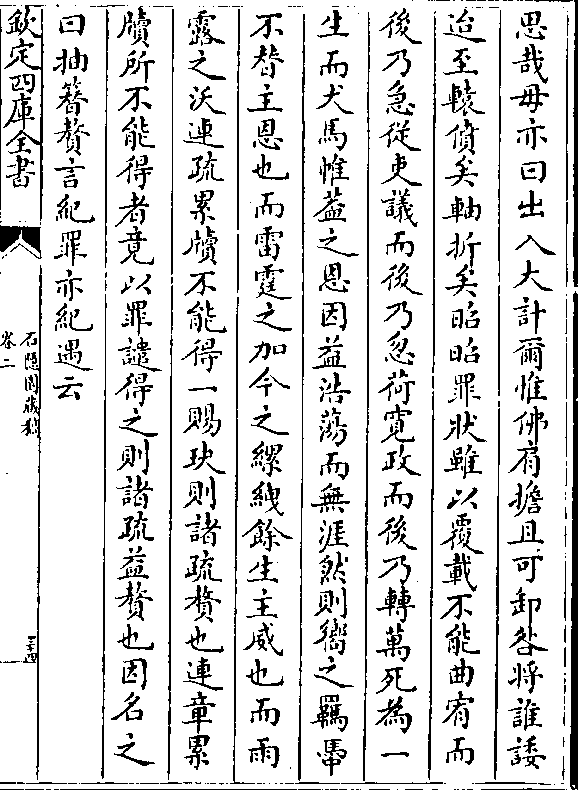 思哉毋亦曰出入大計爾惟佛肩擔且可卸咎將誰諉
迨至轅僨矣軸折矣昭昭罪狀雖以覆載不能曲宥而
後乃急從吏議而後乃忽荷寛政而後乃轉萬死為一
生而犬馬帷葢之恩因益浩蕩而無涯然則嚮之羈馽
不替主恩也而雷霆之加今之縲絏餘生主威也而雨
露之沃連疏累牘不能得一賜玦則諸疏贅也連章累
牘所不能得者竟以罪譴得之則諸疏益贅也因名之
曰抽簪贅言紀罪亦紀遇云
欽定四庫全書
石隱園藏稿
卷二
三十四